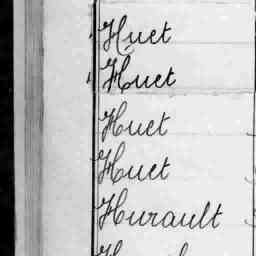 Huet
Huet
Huet
Huet
Hurault